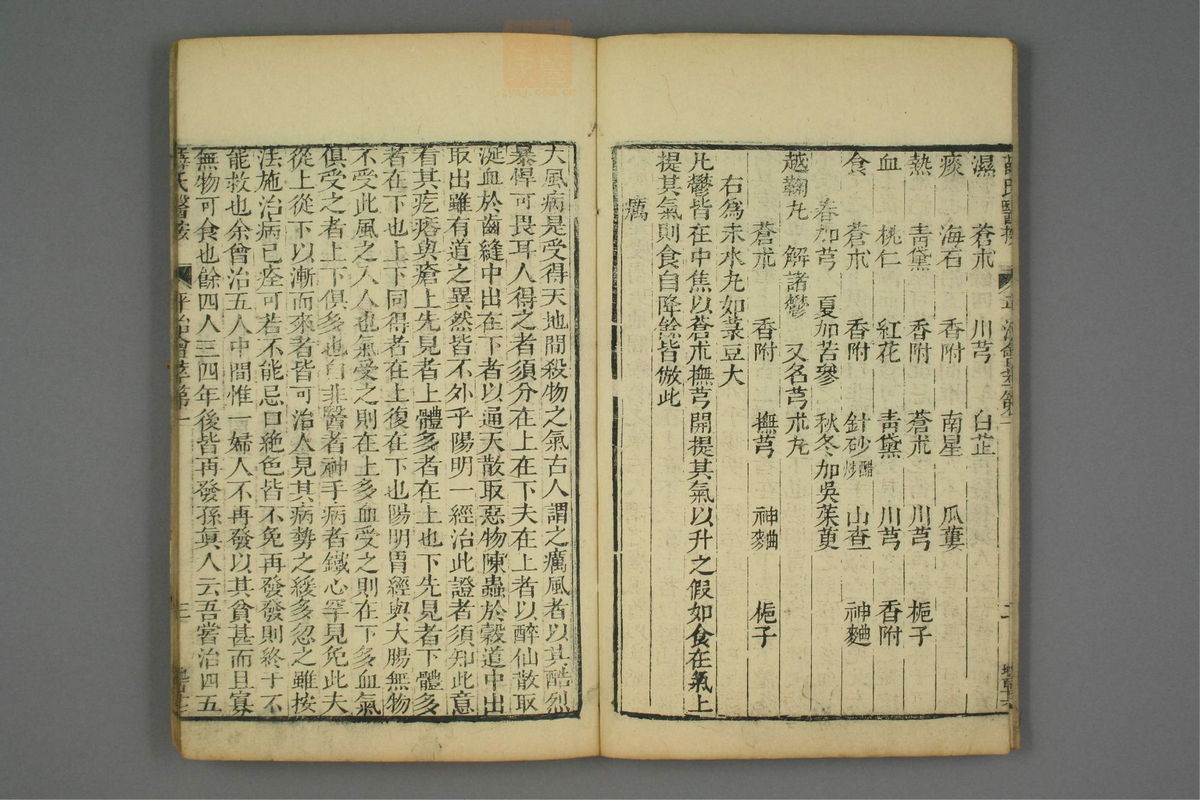 濕 蒼朮 川芎 白芷
痰 海石 香附 南星 瓜蔞
熱 青黛 香附 蒼朮 川芎 梔子
血 桃仁 紅花 青黛 川芎 香附
食 蒼朮 香附 針砂醋炒 山查 神麯
春加芎 夏加苦參 秋冬加吳茱萸
越鞠丸 解諸鬱 又名芎朮丸
蒼朮 香附 撫芎 神麯 梔子
右為末水丸如菉豆大
凡鬱皆在中焦以蒼朮撫芎開提其氣以升之假如食在氣上
提其氣則食自降餘皆倣此
癘
大風病是受得天地間殺物之氣古人謂之癘風者以其酷烈
暴悍可畏耳人得之者須分在上在下夫在上者以醉仙散取
涎血於齒縫中出在下者以通天散取惡物陳蟲於穀道中出
取出雖有道之異然皆不外乎陽明一經治此證者須知此意
有其疙瘩與瘡上先見者上體多者在上也下先見者下體多
者在下也上下同得者在上復在下也陽明胃經與大腸無物
不受此風之入人也氣受之則在上多血受之則在下多血氣
俱受之者上下俱多也自非醫者神手病者鐵心罕見免此夫
從上從下以漸而來者皆可治人見其病勢之緩多忽之雖按
法施治病已痊可若不能忌口絕色皆不免再發發則終于不
能救也余曾治五人中間惟一婦人不再發以其貧甚而且寡
無物可食也餘四人三四年後皆再發孫真人云吾嘗治四五
薛氏醫按 平治會萃卷一 三